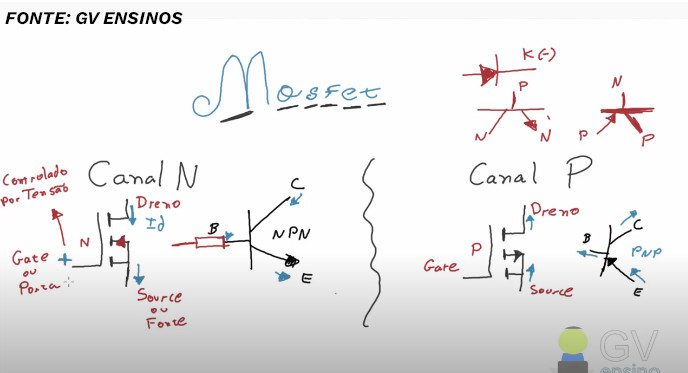 FONTE: GV ENSINOS
Mosfet
K(-)
P
N
N
N
P
P
Canal N
Controlado
por Tensão
Dreno
Id
N
Gate
ou
Porta
+
Source
ou
Fonte
B
C
NPN
E
Canal P
Dreno
P
Gate
Source
B
C
PNP
E
GV
ensino